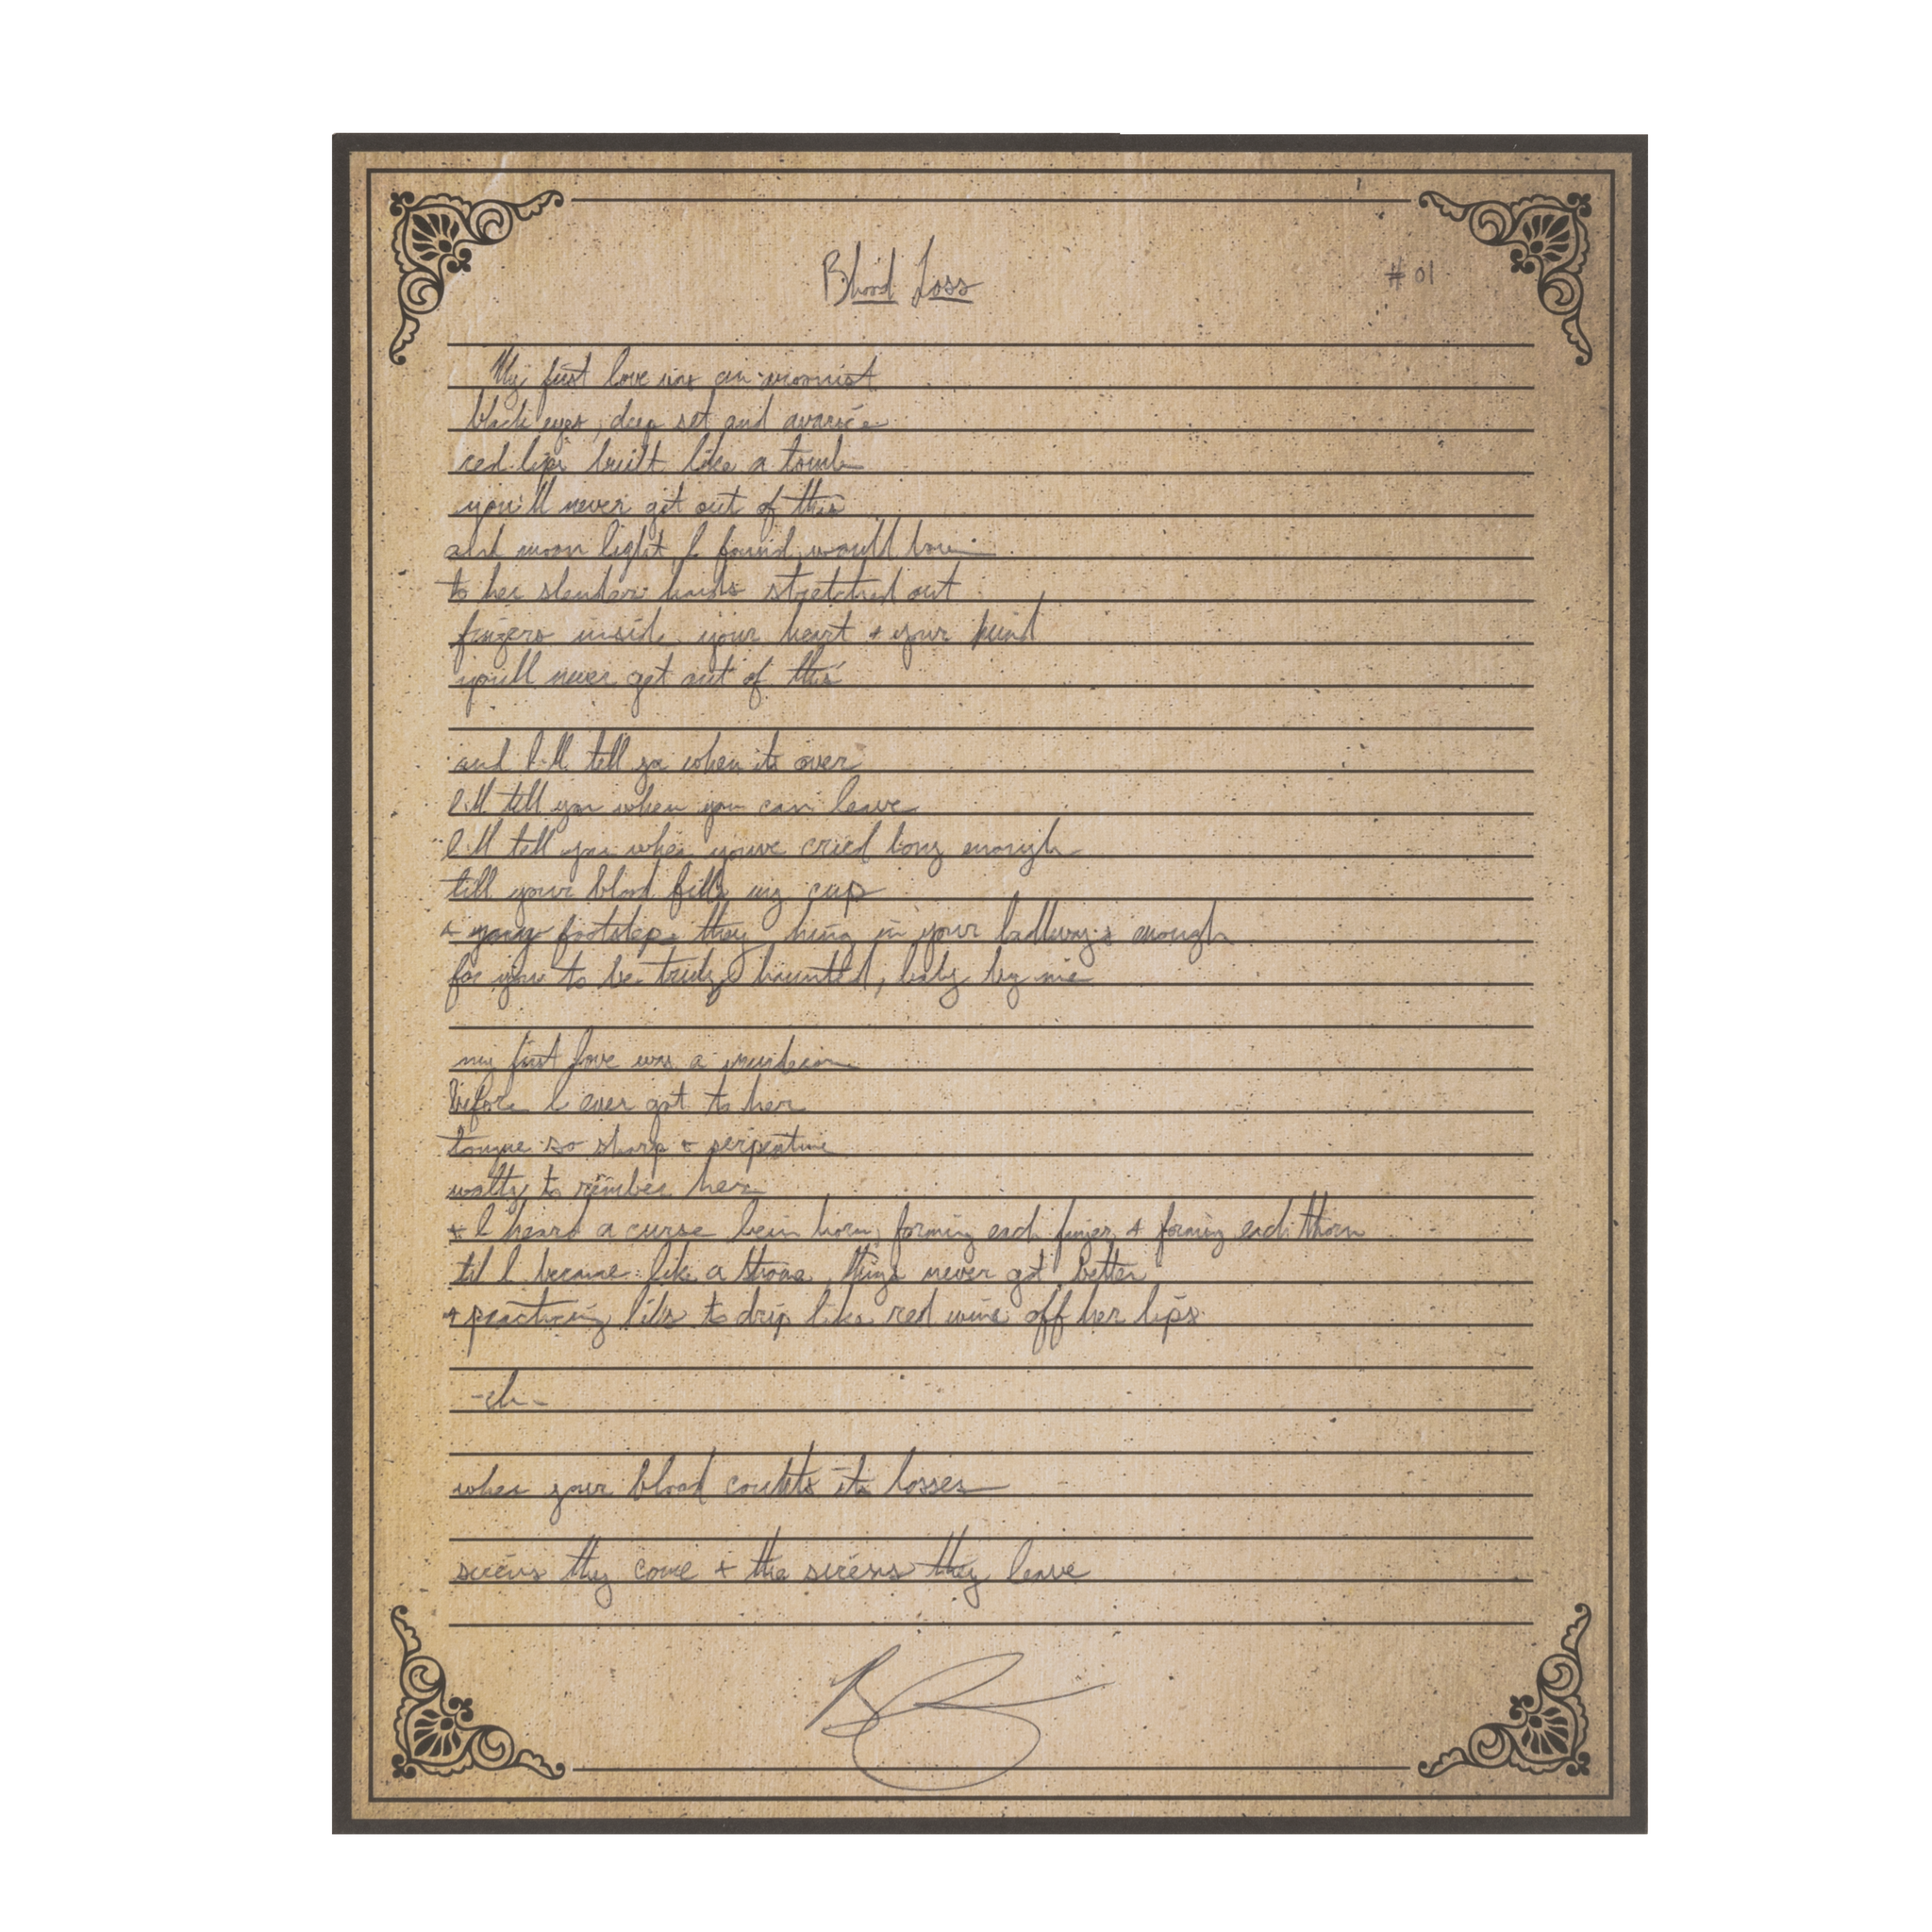 Blood Loss
# 01
My first love was an
black eyes, deep set and avarice
red lips built like a tomb
you'll never get out of this
and moon light I found would bow
to her slender hands stretched out
fingers inside your heart + your mind
you'll never get out of this
and I'll tell ya when its over
I'll tell you when you can leave
I'll tell you when youve cried long enough
till your blood fills my cup
+ your footsteps they hing in your hallways enough
for you to be truly haunted, baby by me
my first love was a
Before I ever got to her
tongue so sharp + serpentine
waltz to her
+ I heard a curse bein born, forming each finger + forming each thorn
til I became like a things never got better
+ practicing to drip like red wine off her lips
-ch-
when your blood counts its losses
sirens they come + the sirens they leave